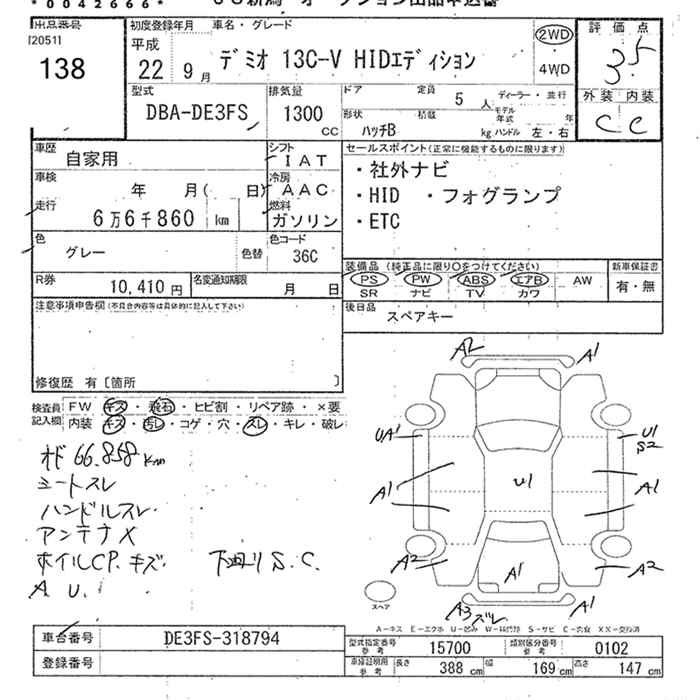 *0042666*
出品番号
[2051]
138
初度登録年月
平成
22 9月
車名・グレード
デミオ 13C-V HIDエディション
2WD
4WD
評価点
3.5
外装 内装
C C
型式
DBA-DE3FS
排気量
1300
cc
ドア
定員
5人
ディーラー・並行
形状
ハッチB
積載
kg
モデル年式
年
ハンドル 左・右
車歴
自家用
シフト
IAT
車検
年 月( 日)
冷房
AAC
走行
6万6千860 km
燃料
ガソリン
色
グレー
色替
色コード
36C
R券
10,410円
名変通知期限
月 日
セールスポイント(正常に機能するものに限ります)
・社外ナビ
・HID ・フォグランプ
・ETC
装備品(純正品に限り○をつけてください)
PS PW ABS エアB AW
SR ナビ TV カワ
新車保証書
有・無
後日品
スペアキー
注意事項申告欄(不具合内容等は具体的に記入して下さい)
修復歴 有〔箇所 〕
検査員記入欄
FW キズ・飛石・ヒビ割・リペア跡・×要
内装 キズ・汚レ・コゲ・穴・スレ・キレ・破レ
66.858Km
シートスレ
ハンドルスレ
アンテナX
ホイルCP.キズ 下廻り S.C.
A U.
A2 A1
UA1 U1
S2
U1
A1 A1
A2 A2
A1
A3 ズレ A1
スペア
A－キズ E－エクボ U－凹み W－補修跡 S－サビ C－腐食 XX－交換済
車台番号
DE3FS-318794
登録番号
型式指定番号
参考
15700
類別区分番号
参考
0102
車庫証明用
参考
長さ 388 cm 幅 169 cm 高さ 147 cm